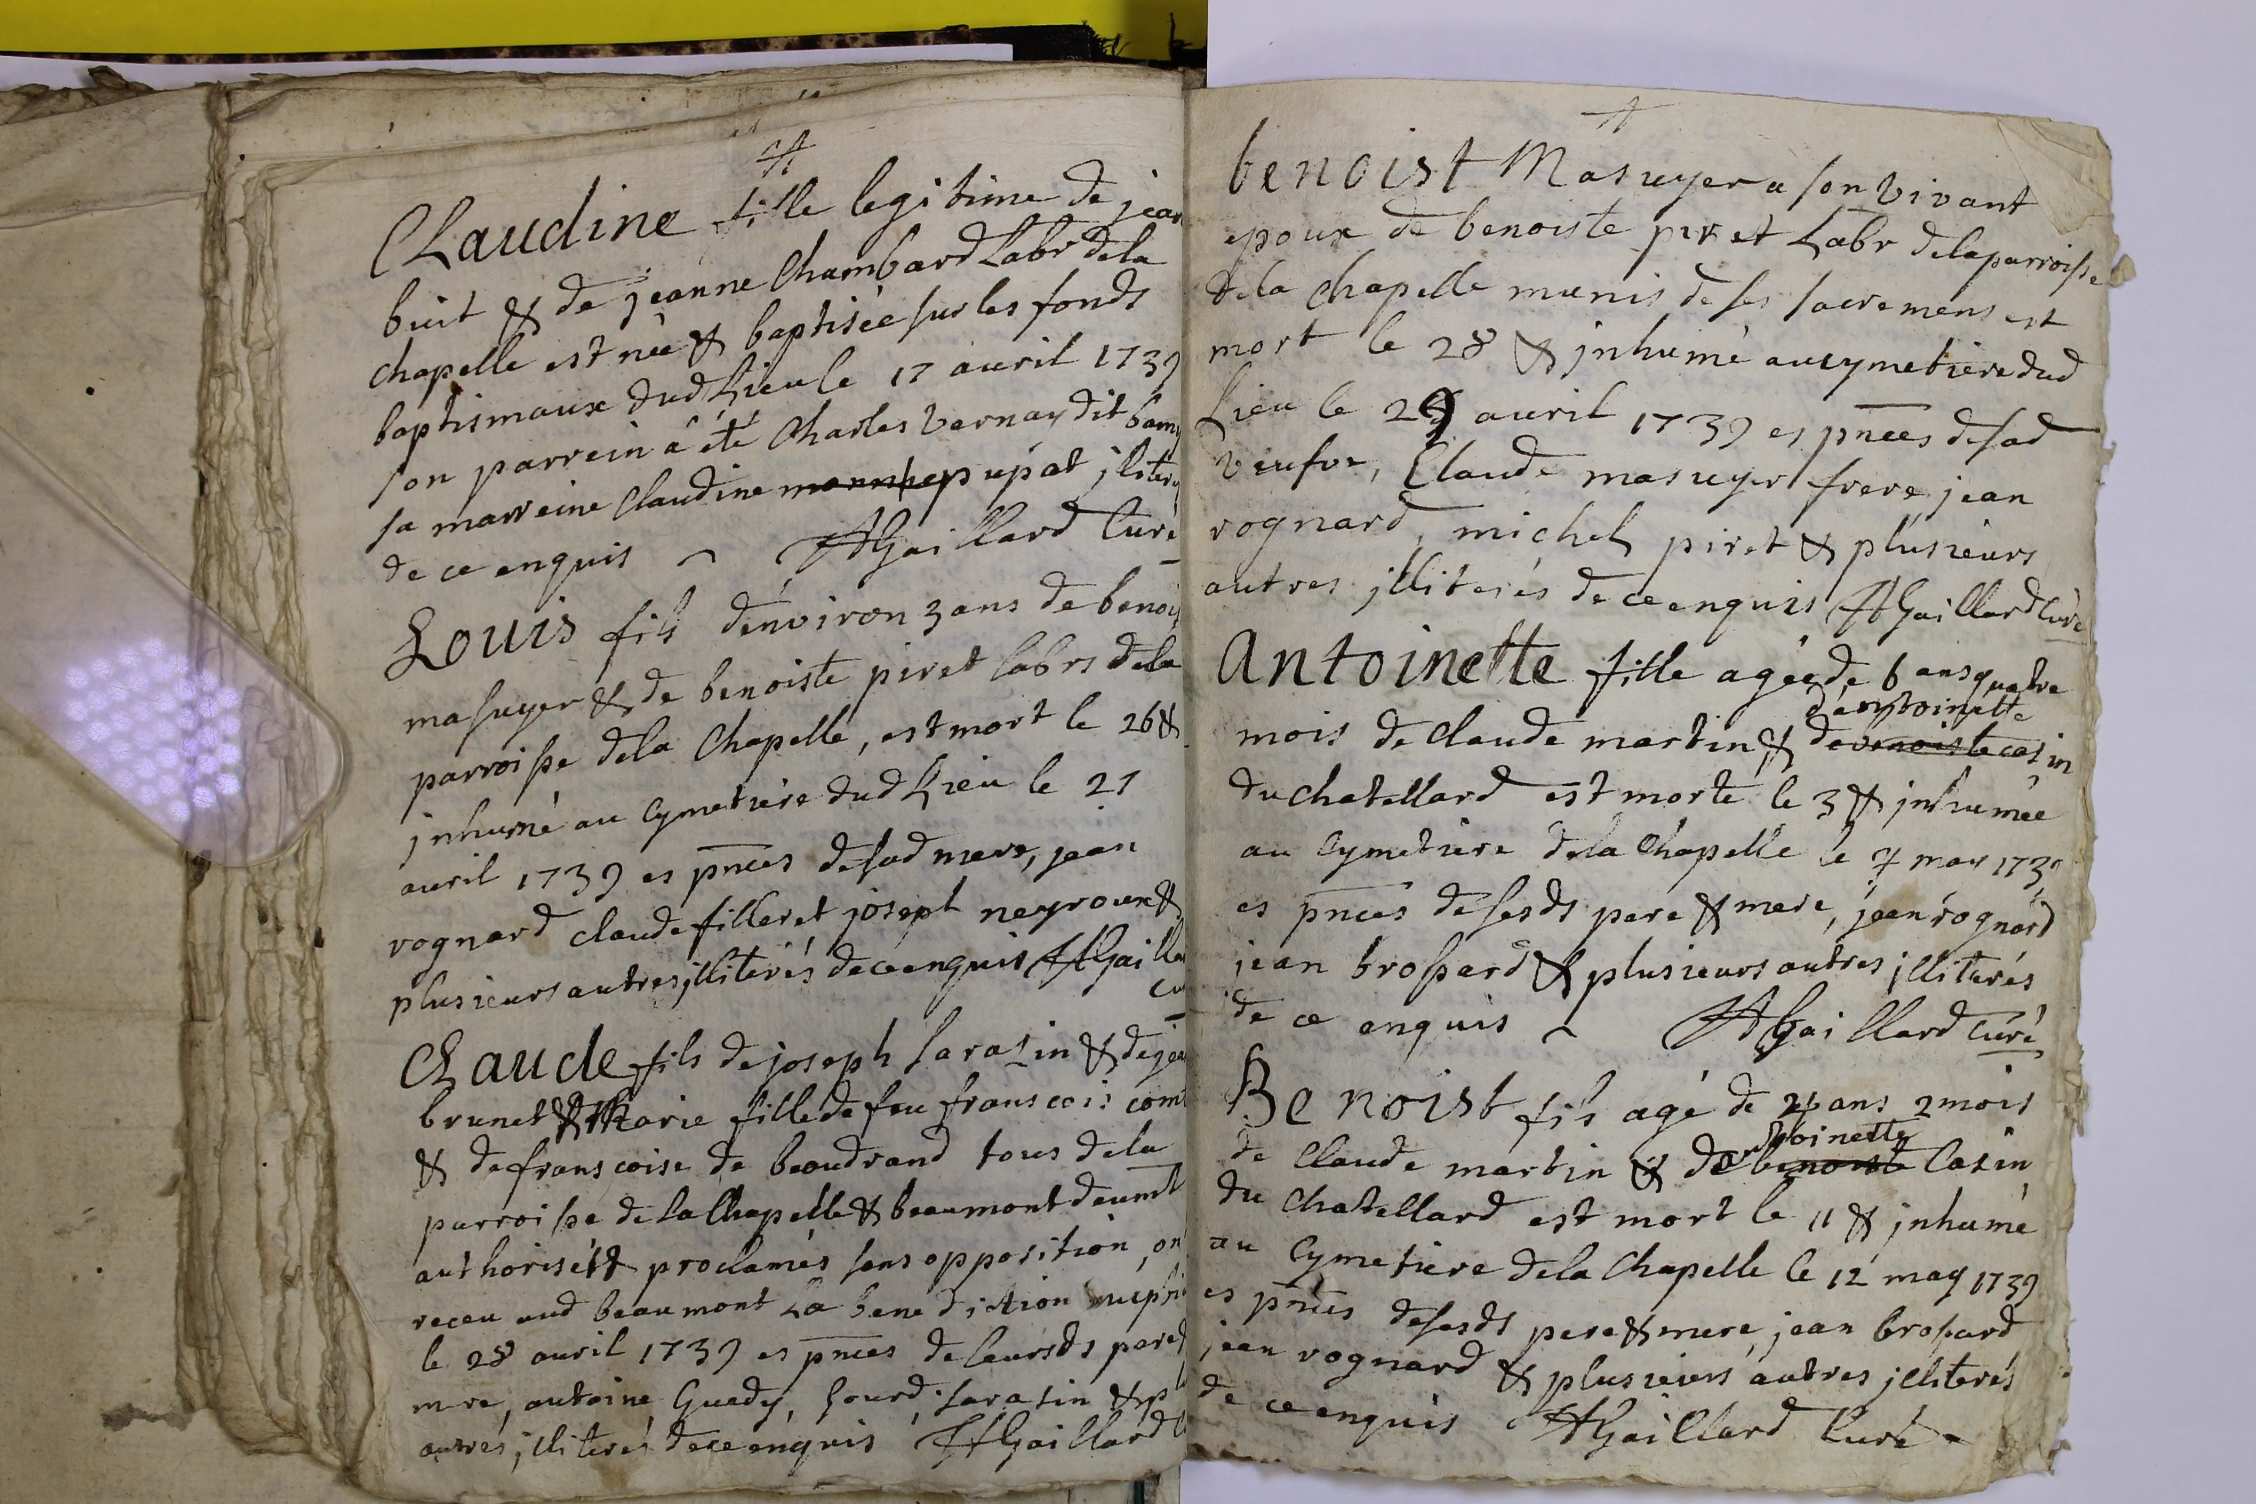 Claudine fille legitime de jean
buit & de jeanne Chambard Labr dela
chapelle est née & baptisée sur les fonds
baptismaux dud Lieu le 17 avril 1739
son parrein à été Charles Vernay dit
sa marreine Claudine pupat jliteré
de ce enquis AGaillard Curé
Louis fils d'environ 3 ans de benois
masuyer & de benoiste piret labrs dela
parroisse dela Chapelle, est mort le 26 &
jnhumé au Cymetiere dud Lieu le 27
avril 1739 es pnces de sad mere, jean
rognard claude filleret joseph neyroux &
plusieurs autres jlliterés de ce enquis AGaillard
cu
Claude fils de joseph sarasin & de jea
brunet & Marie fille de feu franscois comt
& de franscoise de beaudrand tous dela
parroisse de la Chapelle & beaumont deumt
authorisés & proclamés sans opposition, ont
receu aud beaumont La benediction nuptia
le 28 avril 1739 es pnces de leursds pere &
mre, antoine Guedy, sarasin & pl
autres jlliterés de ce enquis AGaillard C
benoist Masuyer a son vivant
epoux de benoiste piret Labr dela parroisse
dela Chapelle munis de ses sacremens est
mort le 28 & jnhumé au cymetiere dud
Lieu le 29 avril 1739 es pnces de sad
veufve, Claude masuyer frere jean
rognard, michel piret & plusieurs
autres jlliterés de ce enquis AGaillard Curé
Antoinette fille agée de 6 ans quatre
d'antoinette
mois de Claude martin & de benoiste casin
du Chatellard est morte le 3 & jnhumée
au Cymetiere dela Chapelle le 4 may 1739
es pnces de sesds pere & mere, jean rognard
jean brossard & plusieurs autres jlliterés
de ce enquis AGaillard Curé
Benoist fils agé de ans 2 mois
antoinette
de Claude martin & de benoiste Casin
du Chatellard est mort le 11 & jnhumé
au Cymetiere dela Chapelle le 12 may 1739
es pnces de sesds pere & mere, jean brossard
jean rognard & plusieurs autres jlliterés
de ce enquis AGaillard Curé